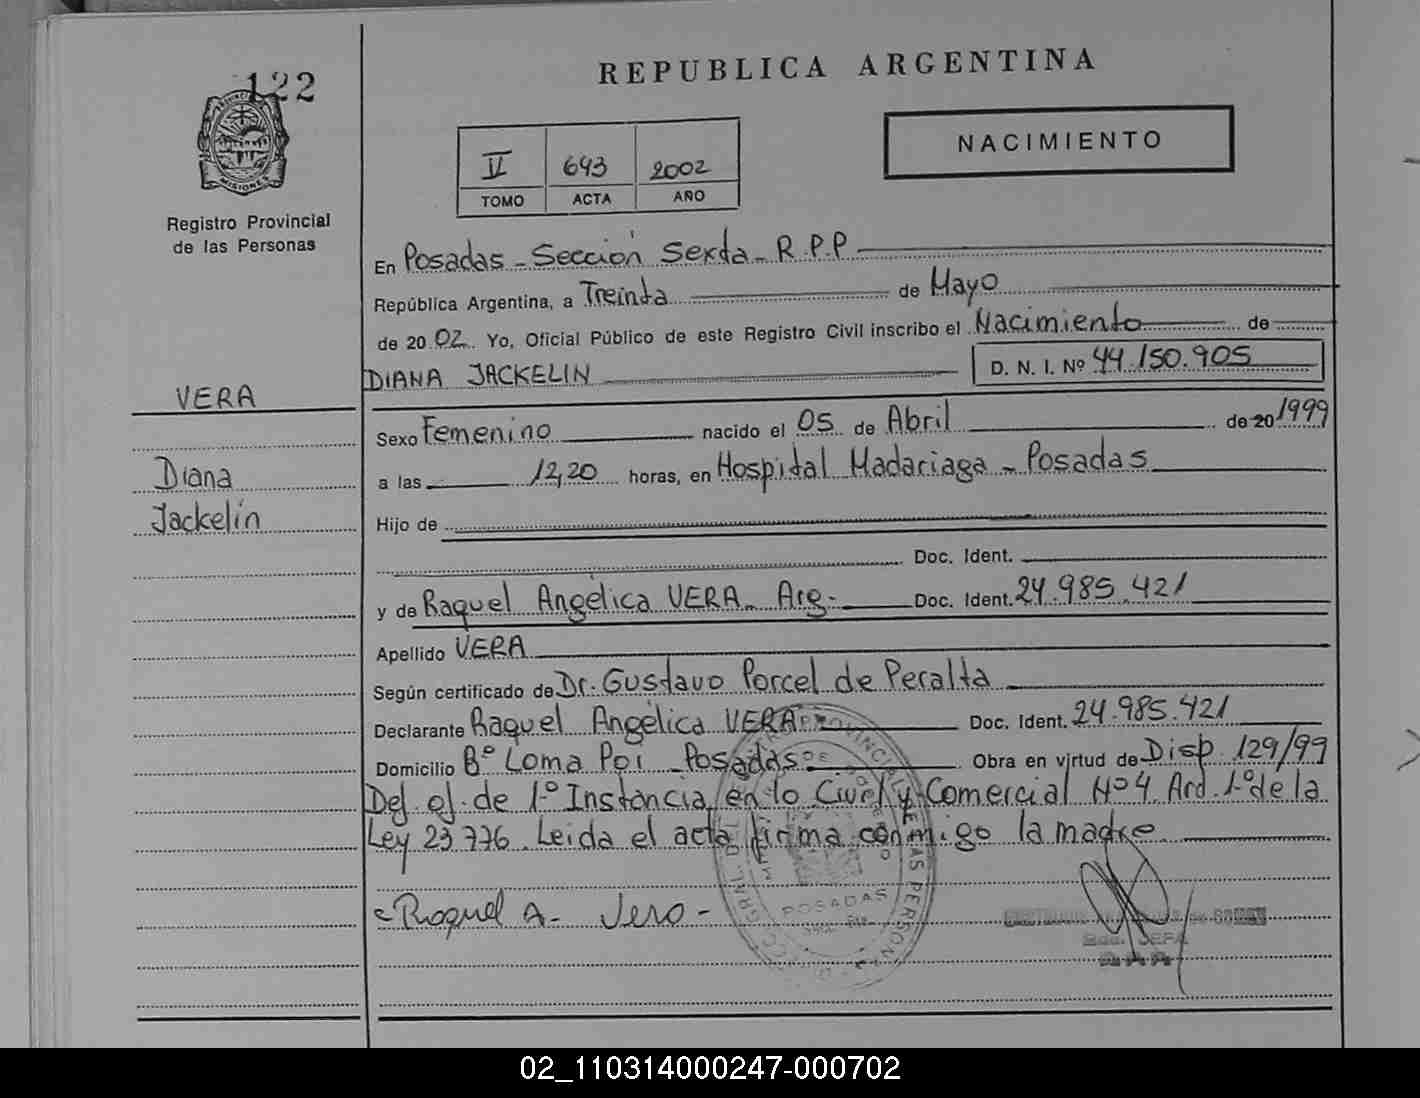 122
PROVINCIA
MISIONES
Registro Provincial
de las Personas
REPUBLICA ARGENTINA
NACIMIENTO
II 643 2002
TOMO ACTA AÑO
En Posadas - Sección Sexta - R.P.P
República Argentina, a Treinta de Mayo
de 20 02. Yo, Oficial Público de este Registro Civil inscribo el Nacimiento de
DIANA JACKELIN D. N. I. Nº 44.150.905
VERA
Diana
Jackelin
Sexo Femenino nacido el 05 de Abril de 20 1999
a las 12,20 horas, en Hospital Madariaga - Posadas
Hijo de
Doc. Ident.
y de Raquel Angélica VERA - Arg. Doc. Ident. 24.985.421
Apellido VERA
Según certificado de Dr. Gustavo Porcel de Peralta
Declarante Raquel Angélica VERA Doc. Ident. 24.985.421
Domicilio Bº Loma Poi - Posadas Obra en virtud de Disp. 129/99
Def. of. de 1º Instancia en lo Civil y Comercial Nº 4 Ard. 1º de la
Ley 23.776. Leida el acta firma conmigo la madre
Raquel A. Vera -
POSADAS
JEFA
02_110314000247-000702